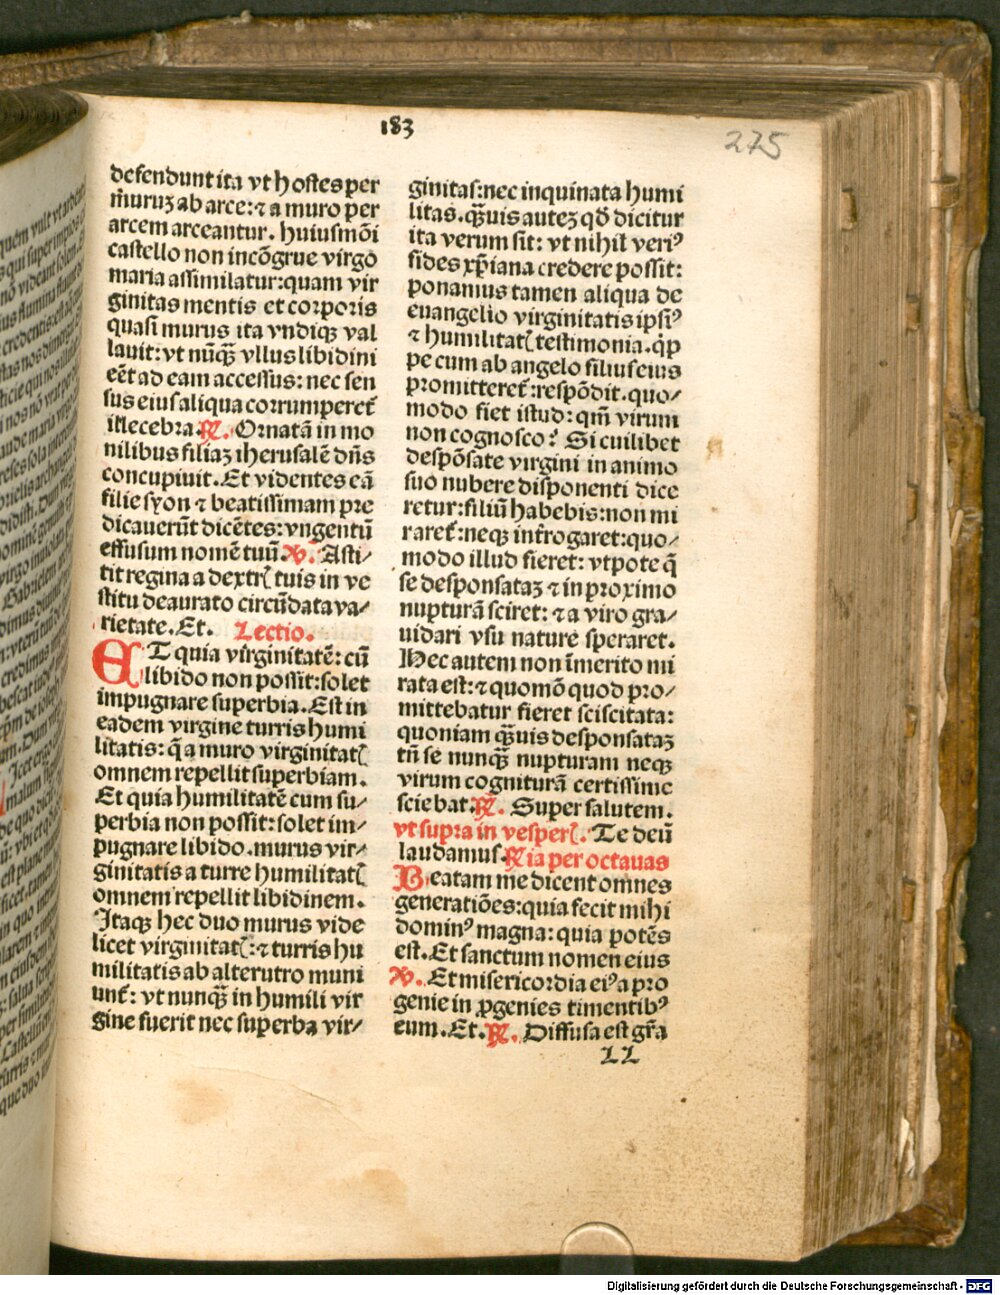 183
275
defendunt ita vt hostes per
m̃uruꝫ ab arce: ⁊ a muro per
arcem arceantur. huiusmõi
castello non incõgrue virgo
maria assimilatur: quam vir
ginitas mentis et corporis
quasi murus ita vndiqꝫ val
lauit: vt nũqꝫ̃ vllus libidini
eẽt ad eam accessus: nec sen
sus eius aliqua corrumperet̃
illecebra. ℟. Ornatã in mo
nilibus filiaꝫ iherusalẽ dñs
concupiuit. Et videntes eã
filie syon ⁊ beatissimam pre
dicauerũt dicẽtes: vngentũ
effusum nomẽ tuũ. ℣. Asti⸗
tit regina a dextrꝭ tuis in ve
stitu deaurato circũdata va⸗
rietate. Et. Lectio.
ET quia virginitatẽ: cũ
libido non possit: solet
impugnare superbia. Est in
eadem virgine turris humi
litatis: q̃ a muro virginitatꝭ
omnem repellit superbiam.
Et quia humilitatẽ cum su⸗
perbia non possit: solet im⸗
pugnare libido. murus vir⸗
ginitatis a turre humilitatꝭ
omnem repellit libidinem.
Itaqꝫ hec duo murus vide
licet virginitatꝭ: ⁊ turris hu
militatis ab alterutro muni
unt̃: vt nunqꝫ̃ in humili vir
gine fuerit nec superba vir⸗
ginitas: nec inquinata humi
litas. qꝫ̃uis auteꝫ qđ dicitur
ita verum sit: vt nihil veriꝰ
fides xp̃iana credere possit:
ponamus tamen aliqua de
euangelio virginitatis ipsiꝰ
⁊ humilitatꝭ testimonia. q̇p
pe cum ab angelo filius eius
promitteret̃: respõdit. quo⸗
modo fiet istud: qm̃ virum
non cognosco? Si cuilibet
despõsate virgini in animo
suo nubere disponenti dice
retur: filiũ habebis: non mi
raret̃: neqꝫ introgaret: quo⸗
modo illud fieret: vtpote q̃
se desponsataꝫ ⁊ in proximo
nupturã sciret: ⁊ a viro gra⸗
uidari vsu nature speraret.
Hec autem non ĩmerito mi
rata est: ⁊ quomõ quod pro⸗
mittebatur fieret sciscitata:
quoniam qꝫ̃uis desponsataꝫ
tñ se nunqꝫ̃ nupturam neqꝫ
virum cogniturã certissime
sciebat. ℟. Super salutem.
vt supra in vesperꝭ. Te deũ
laudamus. ℟ia per octauas
Beatam me dicent omnes
generatiões: quia fecit mihi
dominꝰ magna: quia potẽs
est. Et sanctum nomen eius
℣. Et misericordia eiꝰ a pro
genie in ꝓgenies timentibꝰ
eum. Et. ℟. Diffusa est gr̃a
LL
Digitalisierung gefördert durch die Deutsche Forschungsgemeinschaft - DFG